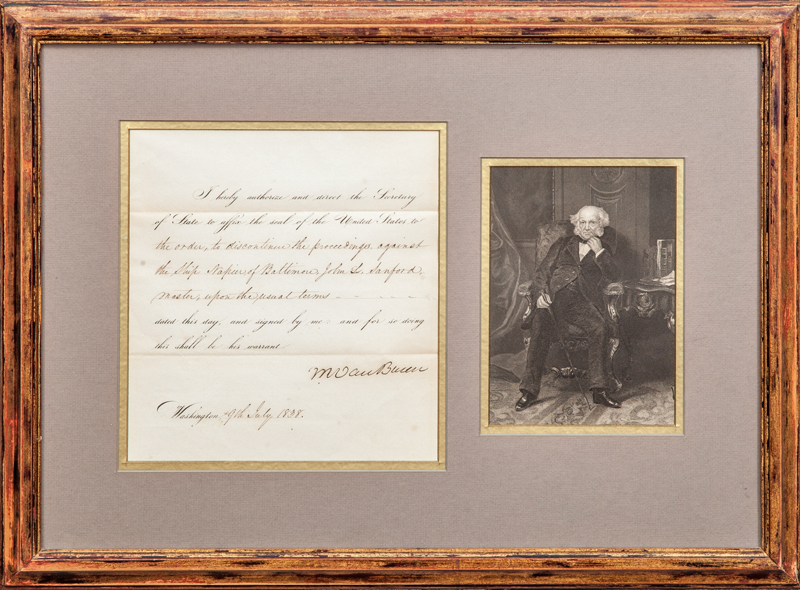 I hereby authorize and direct the Secretary
of State to affix the seal of the United States to
the order, to discontinue the proceedings against
the Ship Napier of Baltimore, John L. Sanford,
master, upon the usual terms - - - - -
dated this day, and signed by me : and for so doing
this shall be his warrant
M Van Buren
Washington, 9th July 1838.